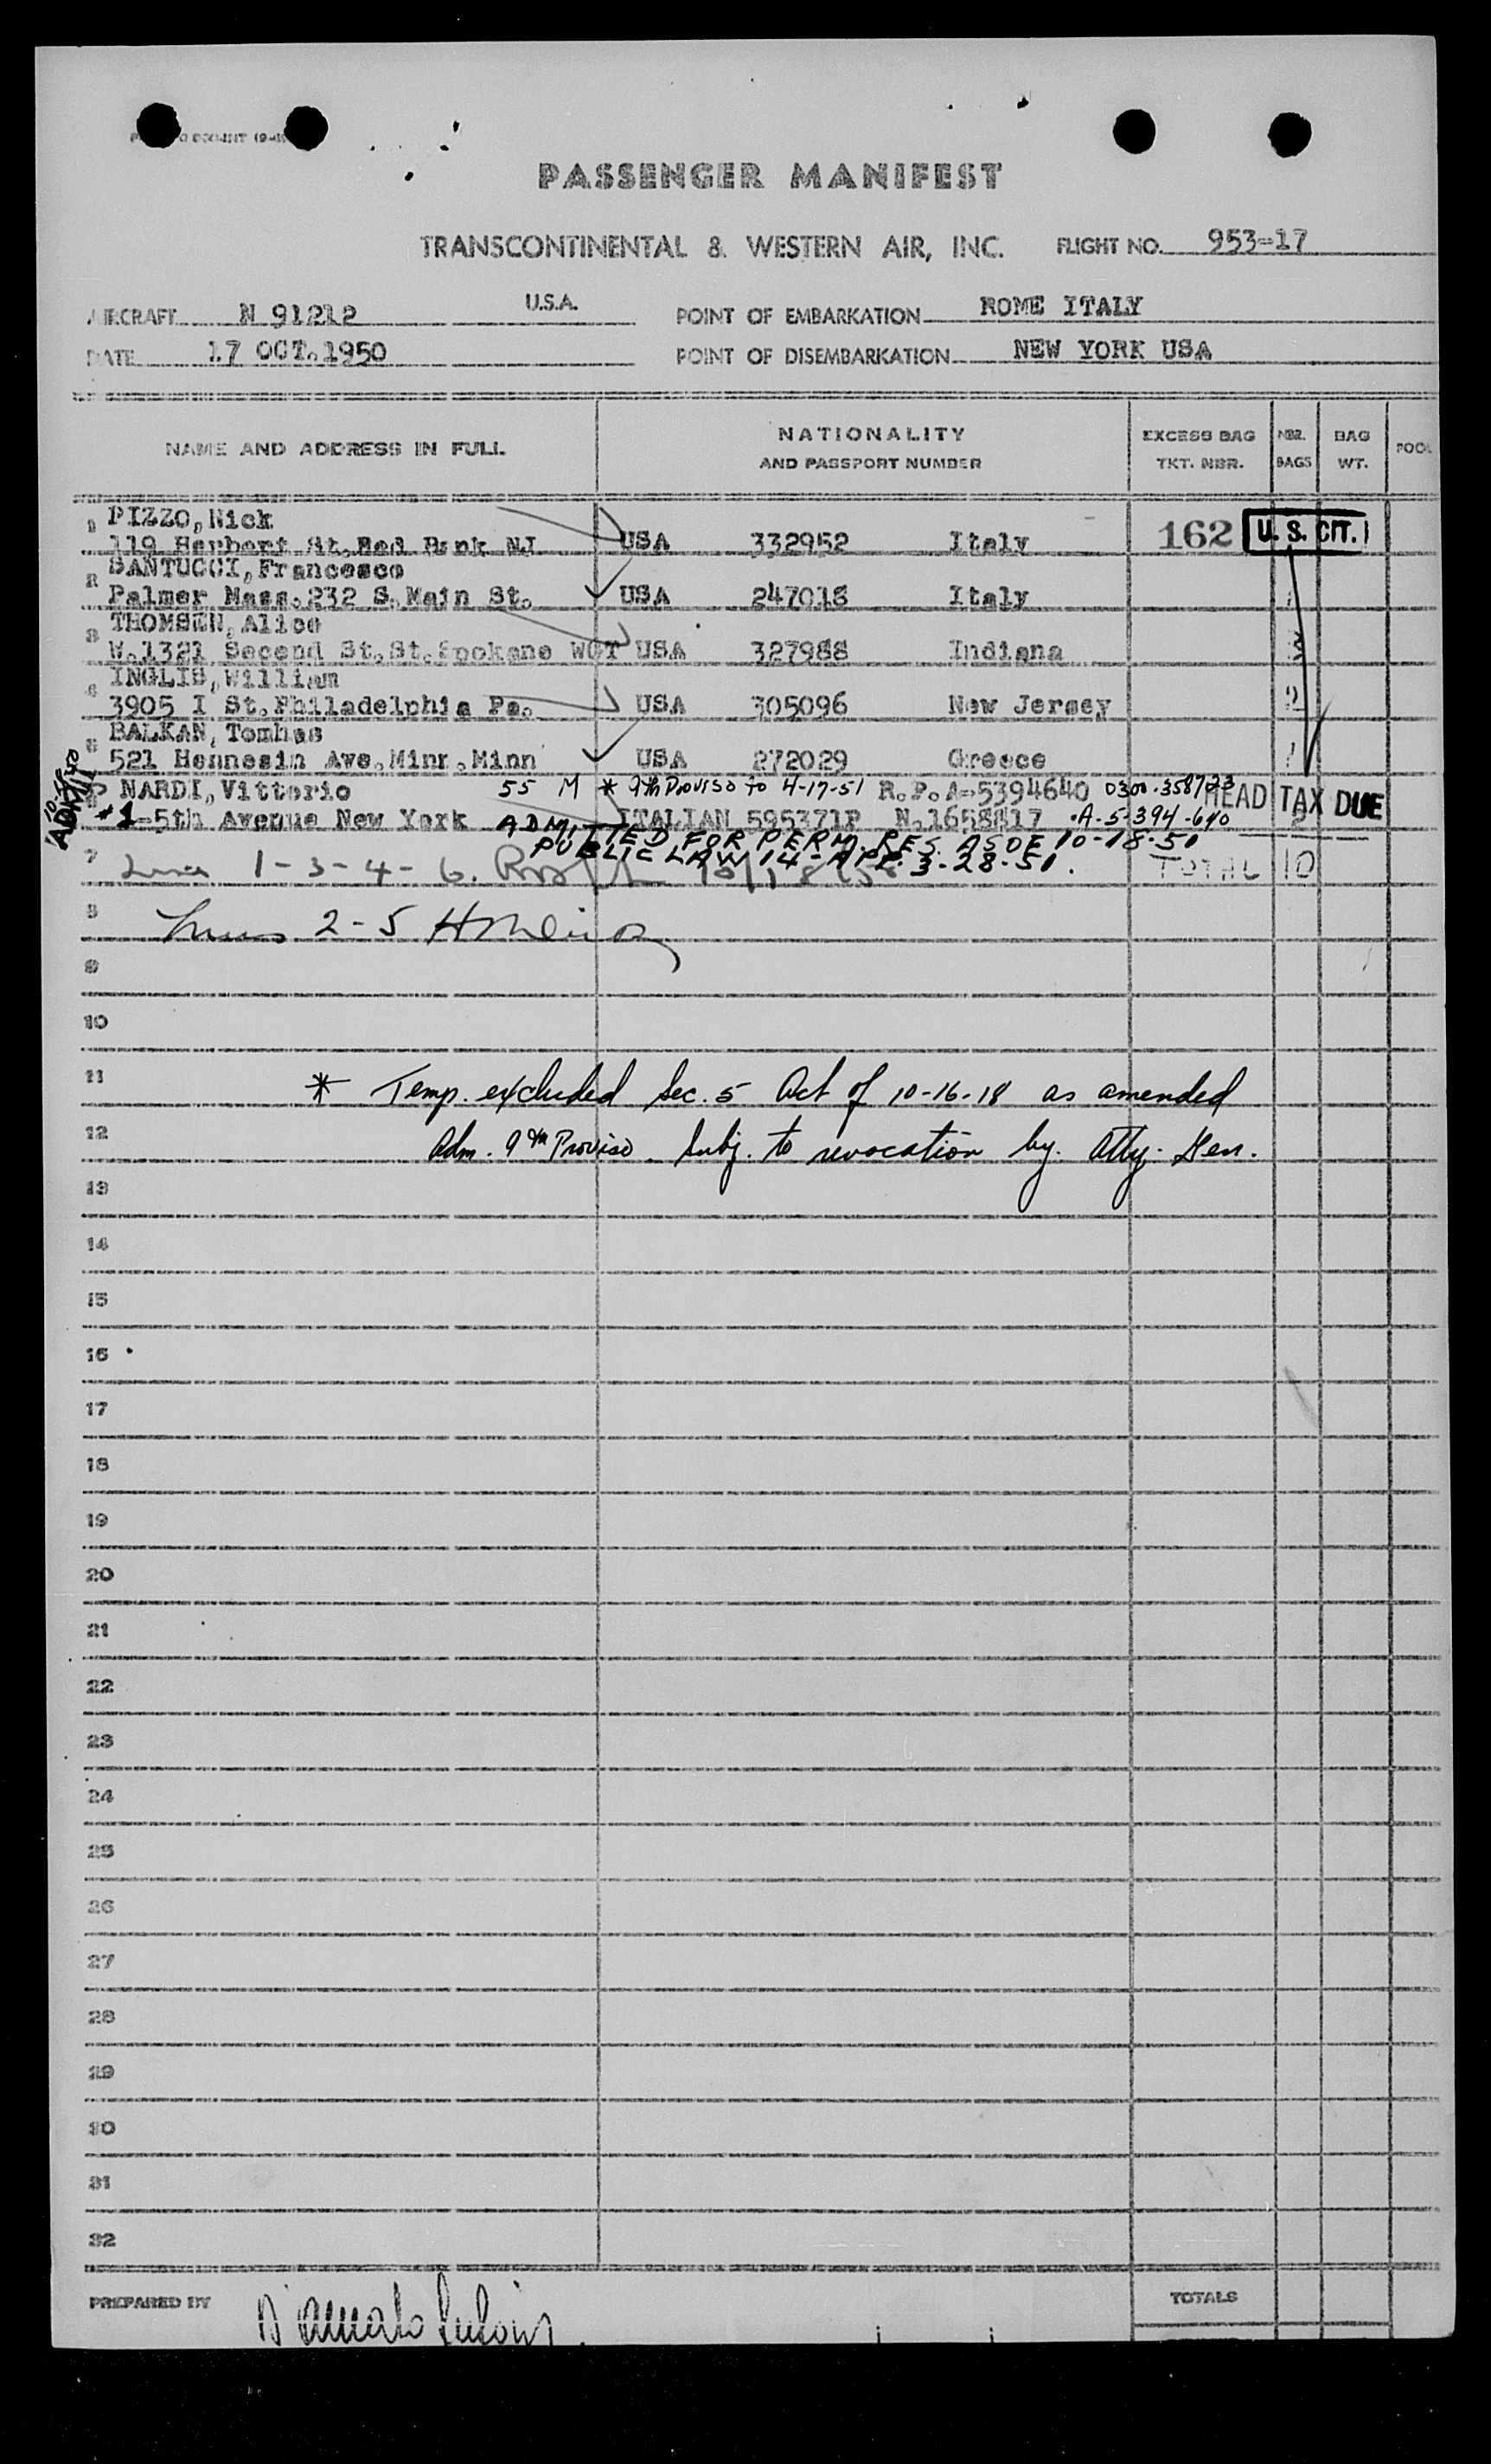 PASSENGER MANIFEST
TRANSCONTINENTAL & WESTERN AIR, INC. FLIGHT NO. 953-17
AIRCRAFT N 91212 U.S.A. POINT OF EMBARKATION ROME ITALY
DATE 17 OCT.1950 POINT OF DISEMBARKATION NEW YORK USA
NAME AND ADDRESS IN FULL NATIONALITY AND PASSPORT NUMBER EXCESS BAG TKT. NBR. NBR. BAGS BAG WT.
1 PIZZO,Nick
119 Herbert St.Red Bank NJ USA 332952 Italy 162 U.S. CIT.
2 SANTUCCI,Francesco
Palmer Mass.232 S.Main St. USA 247018 Italy 1
3 THOMSEN,Alice
W.1321 Second St.St.Spokane WGT USA 327988 Indiana 3
4 INGLIS,William
3905 I St.Philadelphia Pa. USA 305096 New Jersey 2
5 BALKAN,Tomhas
521 Hennesin Ave.Minn.Minn USA 272029 Greece 1
NARDI,Vittorio 55 M * 9th Proviso to 4-17-51 R.P.A-5394640 0300-358723 HEAD TAX DUE
#1-5th Avenue New York ITALIAN 595371P N.1658817 A-5-394-640
ADMITTED FOR PERM. RES. AS OF 10-18-50
PUBLIC LAW 14-APP. 3-28-51.
7 1-3-4-6. 10/18/50 TOTAL 10
8 2-5
9
10
11 * Temp. excluded Sec. 5 Act of 10-16-18 as amended
12 Adm. 9th Proviso. Subj. to revocation by. Atty. Gen.
13
14
15
16
17
18
19
20
21
22
23
24
25
26
27
28
29
30
31
32
PREPARED BY TOTALS